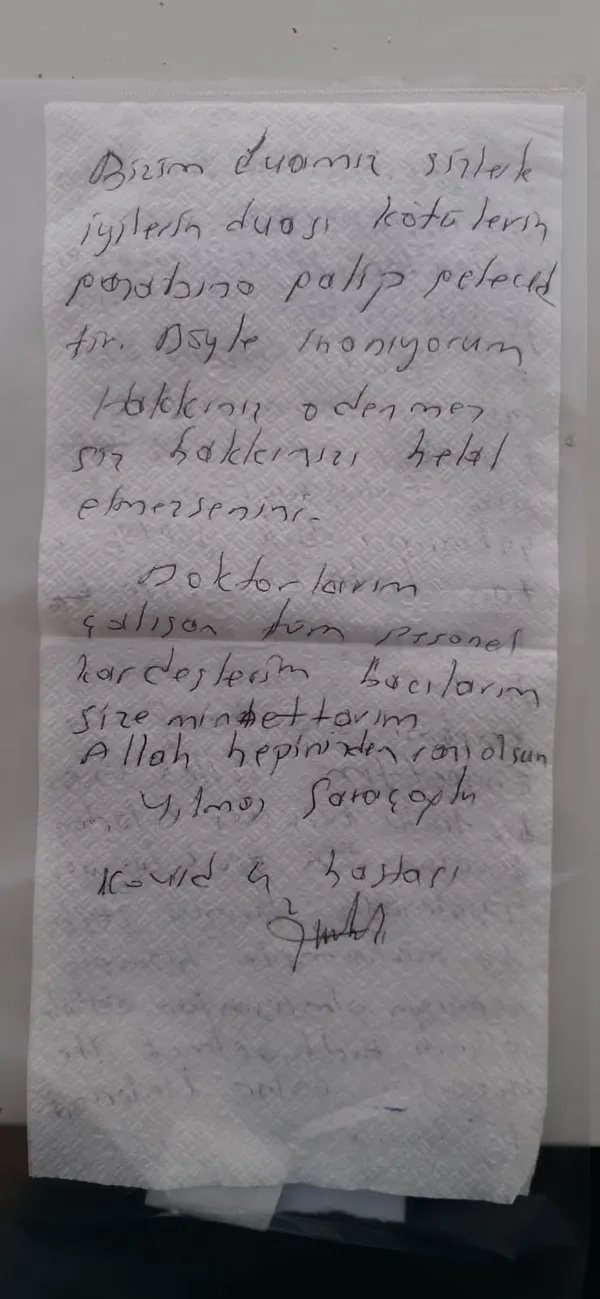 Bizim duamız sizlerle
iyilerin duası kötülerin
galip gelecek
tir. Böyle inanıyorum
Hakkınız ödenmez
siz hakkınızı helal
etmezseniniz.
Doktorlarım
çalışan tüm personel
kardeşlerim bacılarım
size minnettarım
Allah hepinizden razı olsun
Yılmaz Saraçoğlu
Kovid hastası